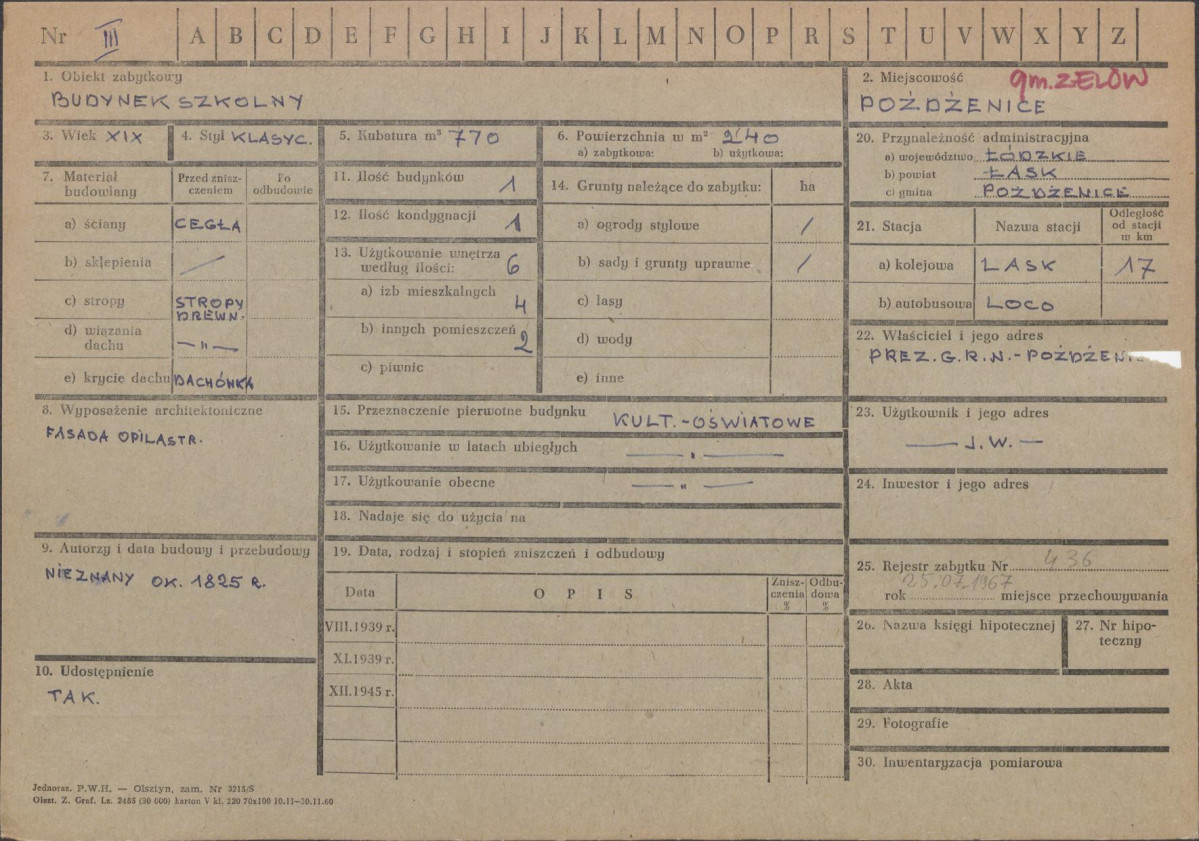 Nr III A B C D E F G H I J K L M N O P R S T U V W X Y Z
1. Obiekt zabytkowy
BUDYNEK SZKOLNY
2. Miejscowość gm. ZELÓW
POŻDŻENICE
3. Wiek XIX
4. Styl KLASYC.
5. Kubatura m³ 770
6. Powierzchnia w m² 240
a) zabytkowa: b) użytkowa:
7. Materiał budowlany
Przed znisz-
czeniem
Po
odbudowie
a) ściany CEGŁA
b) sklepienia /
c) stropy STROPY
DREWN.
d) wiązania
dachu —„—
e) krycie dachu DACHÓWKA
8. Wyposażenie architektoniczne
FASADA OPILASTR.
9. Autorzy i data budowy i przebudowy
NIEZNANY OK. 1825 R.
10. Udostępnienie
TAK.
11. Ilość budynków 1
12. Ilość kondygnacji 1
13. Użytkowanie wnętrza
według ilości: 6
a) izb mieszkalnych 4
b) innych pomieszczeń 2
c) piwnic
14. Grunty należące do zabytku: ha
a) ogrody stylowe /
b) sady i grunty uprawne /
c) lasy
d) wody
e) inne
15. Przeznaczenie pierwotne budynku KULT.-OŚWIATOWE
16. Użytkowanie w latach ubiegłych —„—
17. Użytkowanie obecne —„—
18. Nadaje się do użycia na
19. Data, rodzaj i stopień zniszczeń i odbudowy
Data
OPIS
Znisz-
czenia
%
Odbu-
dowa
%
VIII.1939 r.
XI.1939 r.
XII.1945 r.
20. Przynależność administracyjna
a) województwo ŁÓDZKIE
b) powiat ŁASK
c) gmina POŻDŻENICE
21. Stacja
Nazwa stacji
Odległość
od stacji
w km
a) kolejowa LASK 17
b) autobusowa LOCO
22. Właściciel i jego adres
PREZ. G.R.N.-POŻDŻENI
23. Użytkownik i jego adres
— J.W. —
24. Inwestor i jego adres
25. Rejestr zabytku Nr 436
25.07.1967
rok miejsce przechowywania
26. Nazwa księgi hipotecznej
27. Nr hipo-
teczny
28. Akta
29. Fotografie
30. Inwentaryzacja pomiarowa
Jednoraz. P.W.H. — Olsztyn, zam. Nr 3215/S
Olszt. Z. Graf. Lz. 2455 (30 000) karton V kl. 220 70x100 10.11—30.11.60